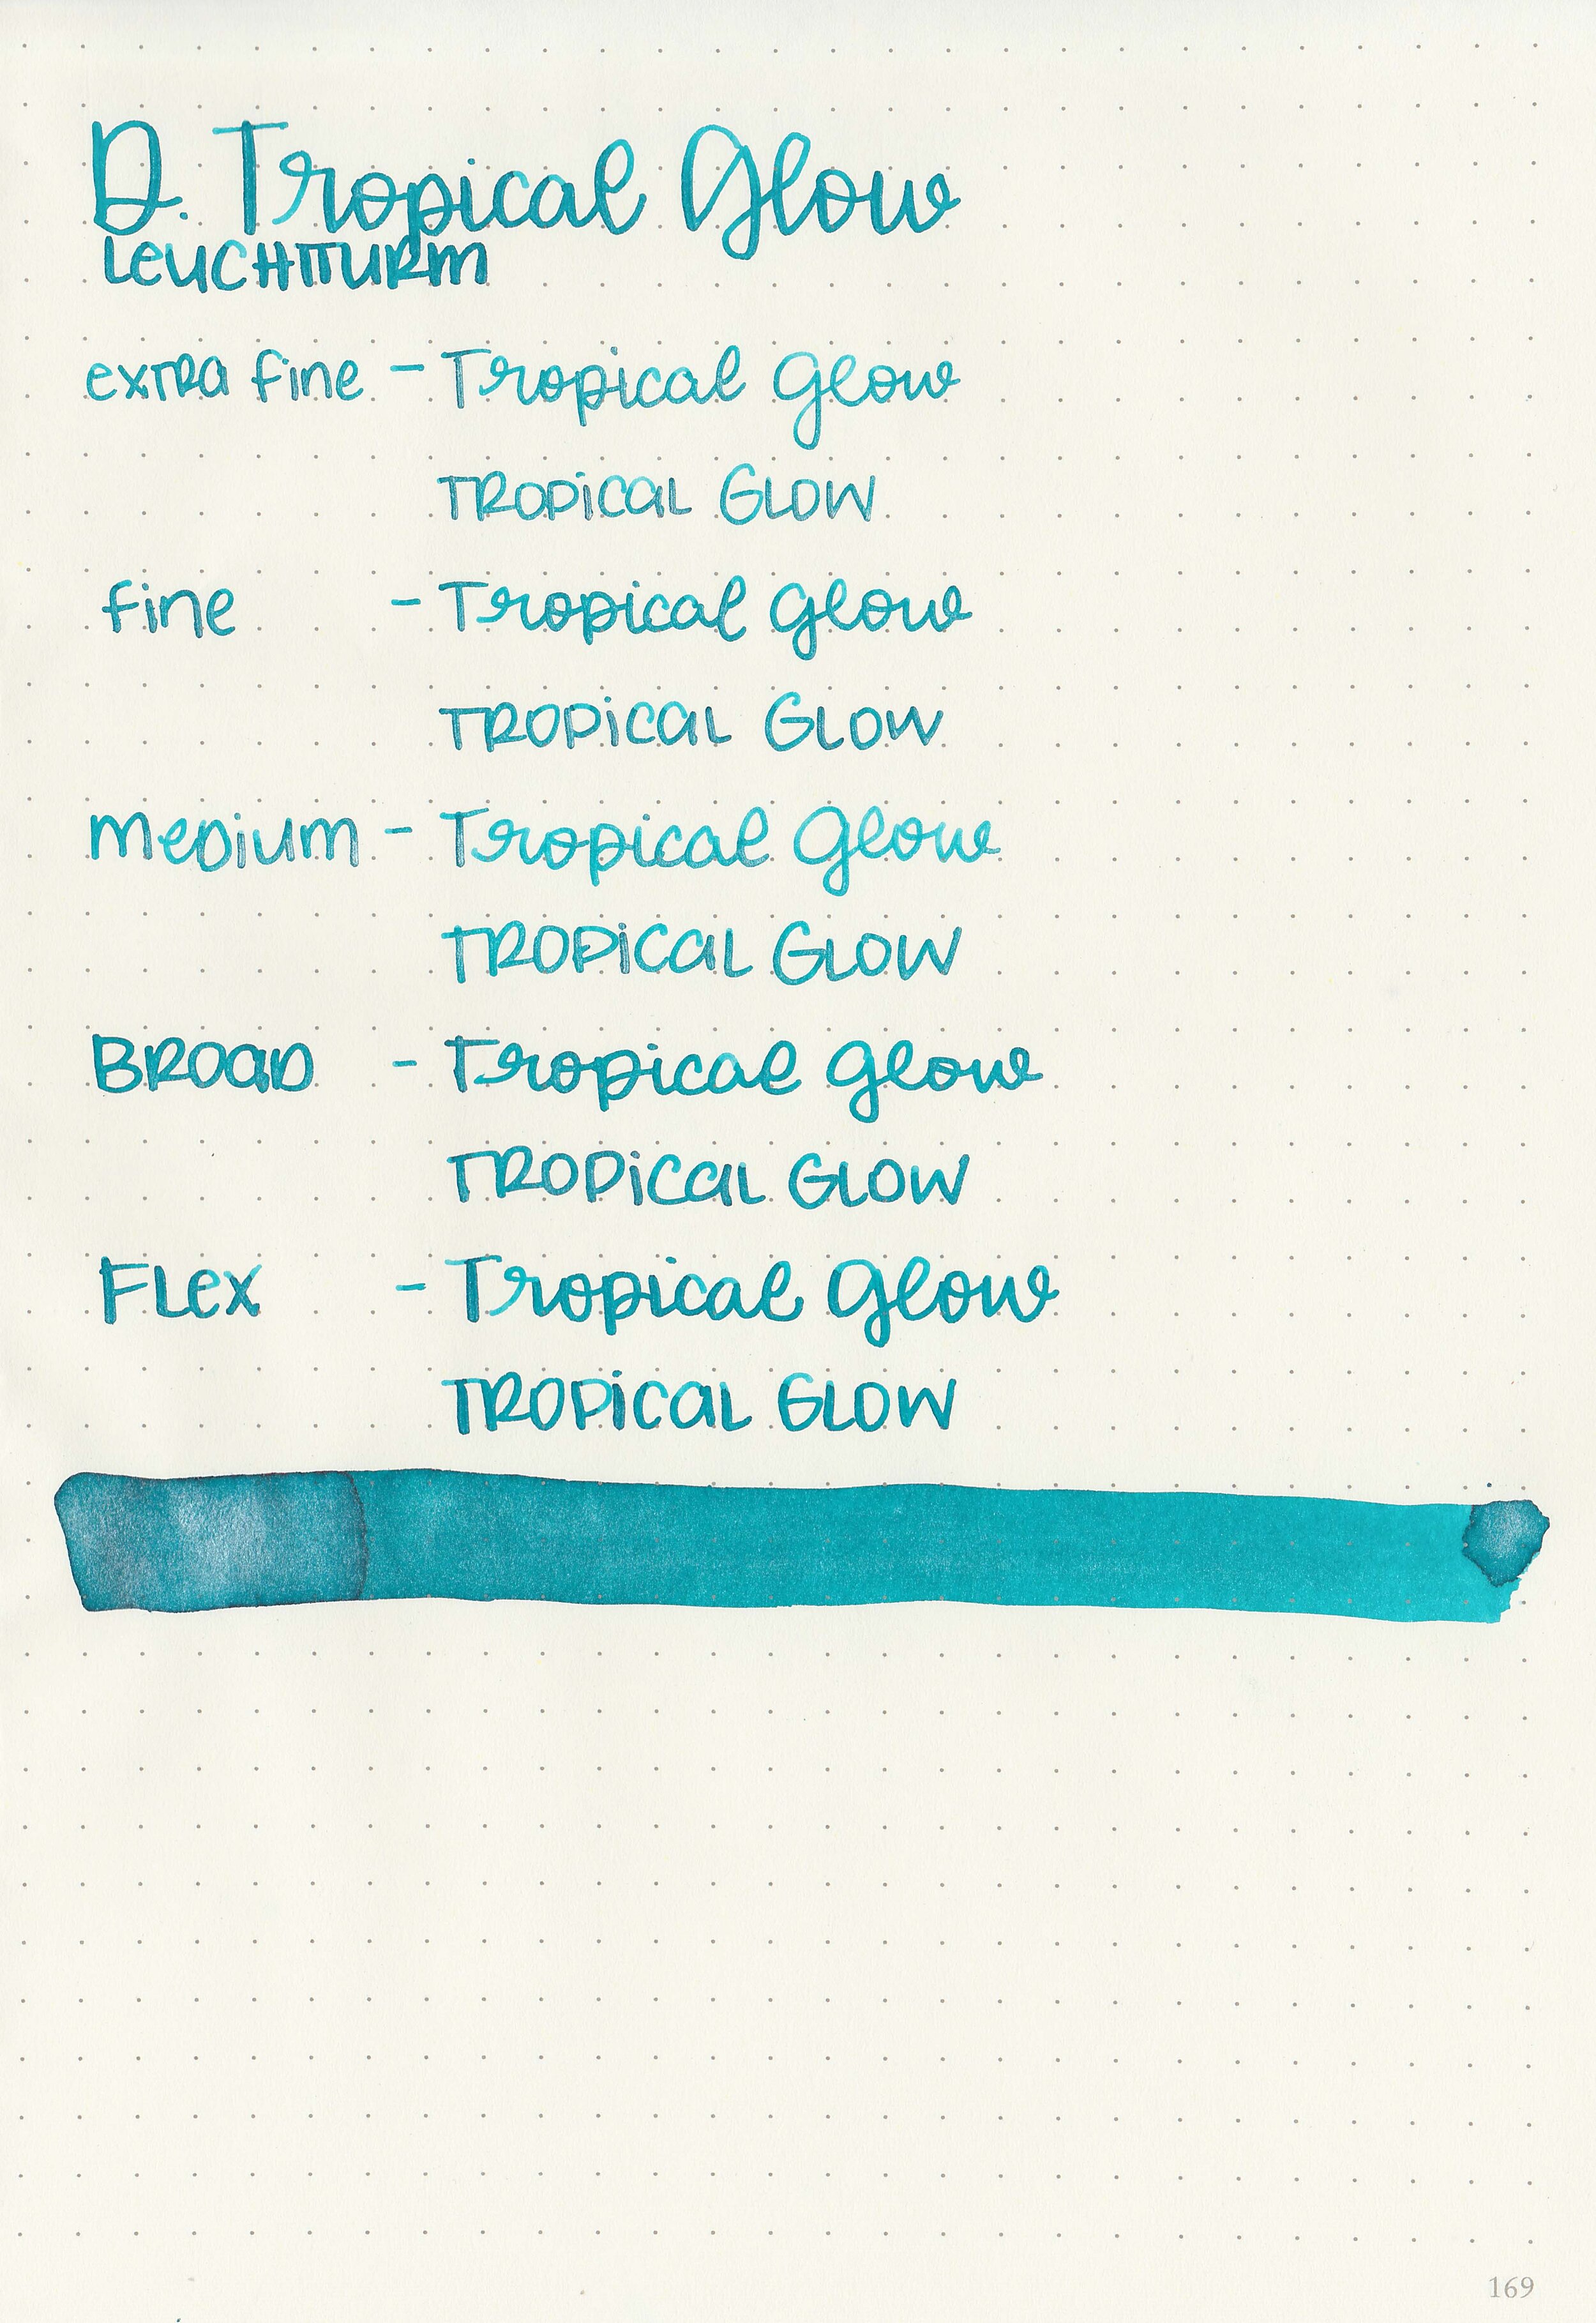 D. Tropical Glow
Leuchtturm
extra fine - Tropical Glow
Tropical Glow
fine - Tropical Glow
Tropical Glow
medium - Tropical Glow
Tropical Glow
Broad - Tropical Glow
Tropical Glow
Flex - Tropical Glow
Tropical Glow
169